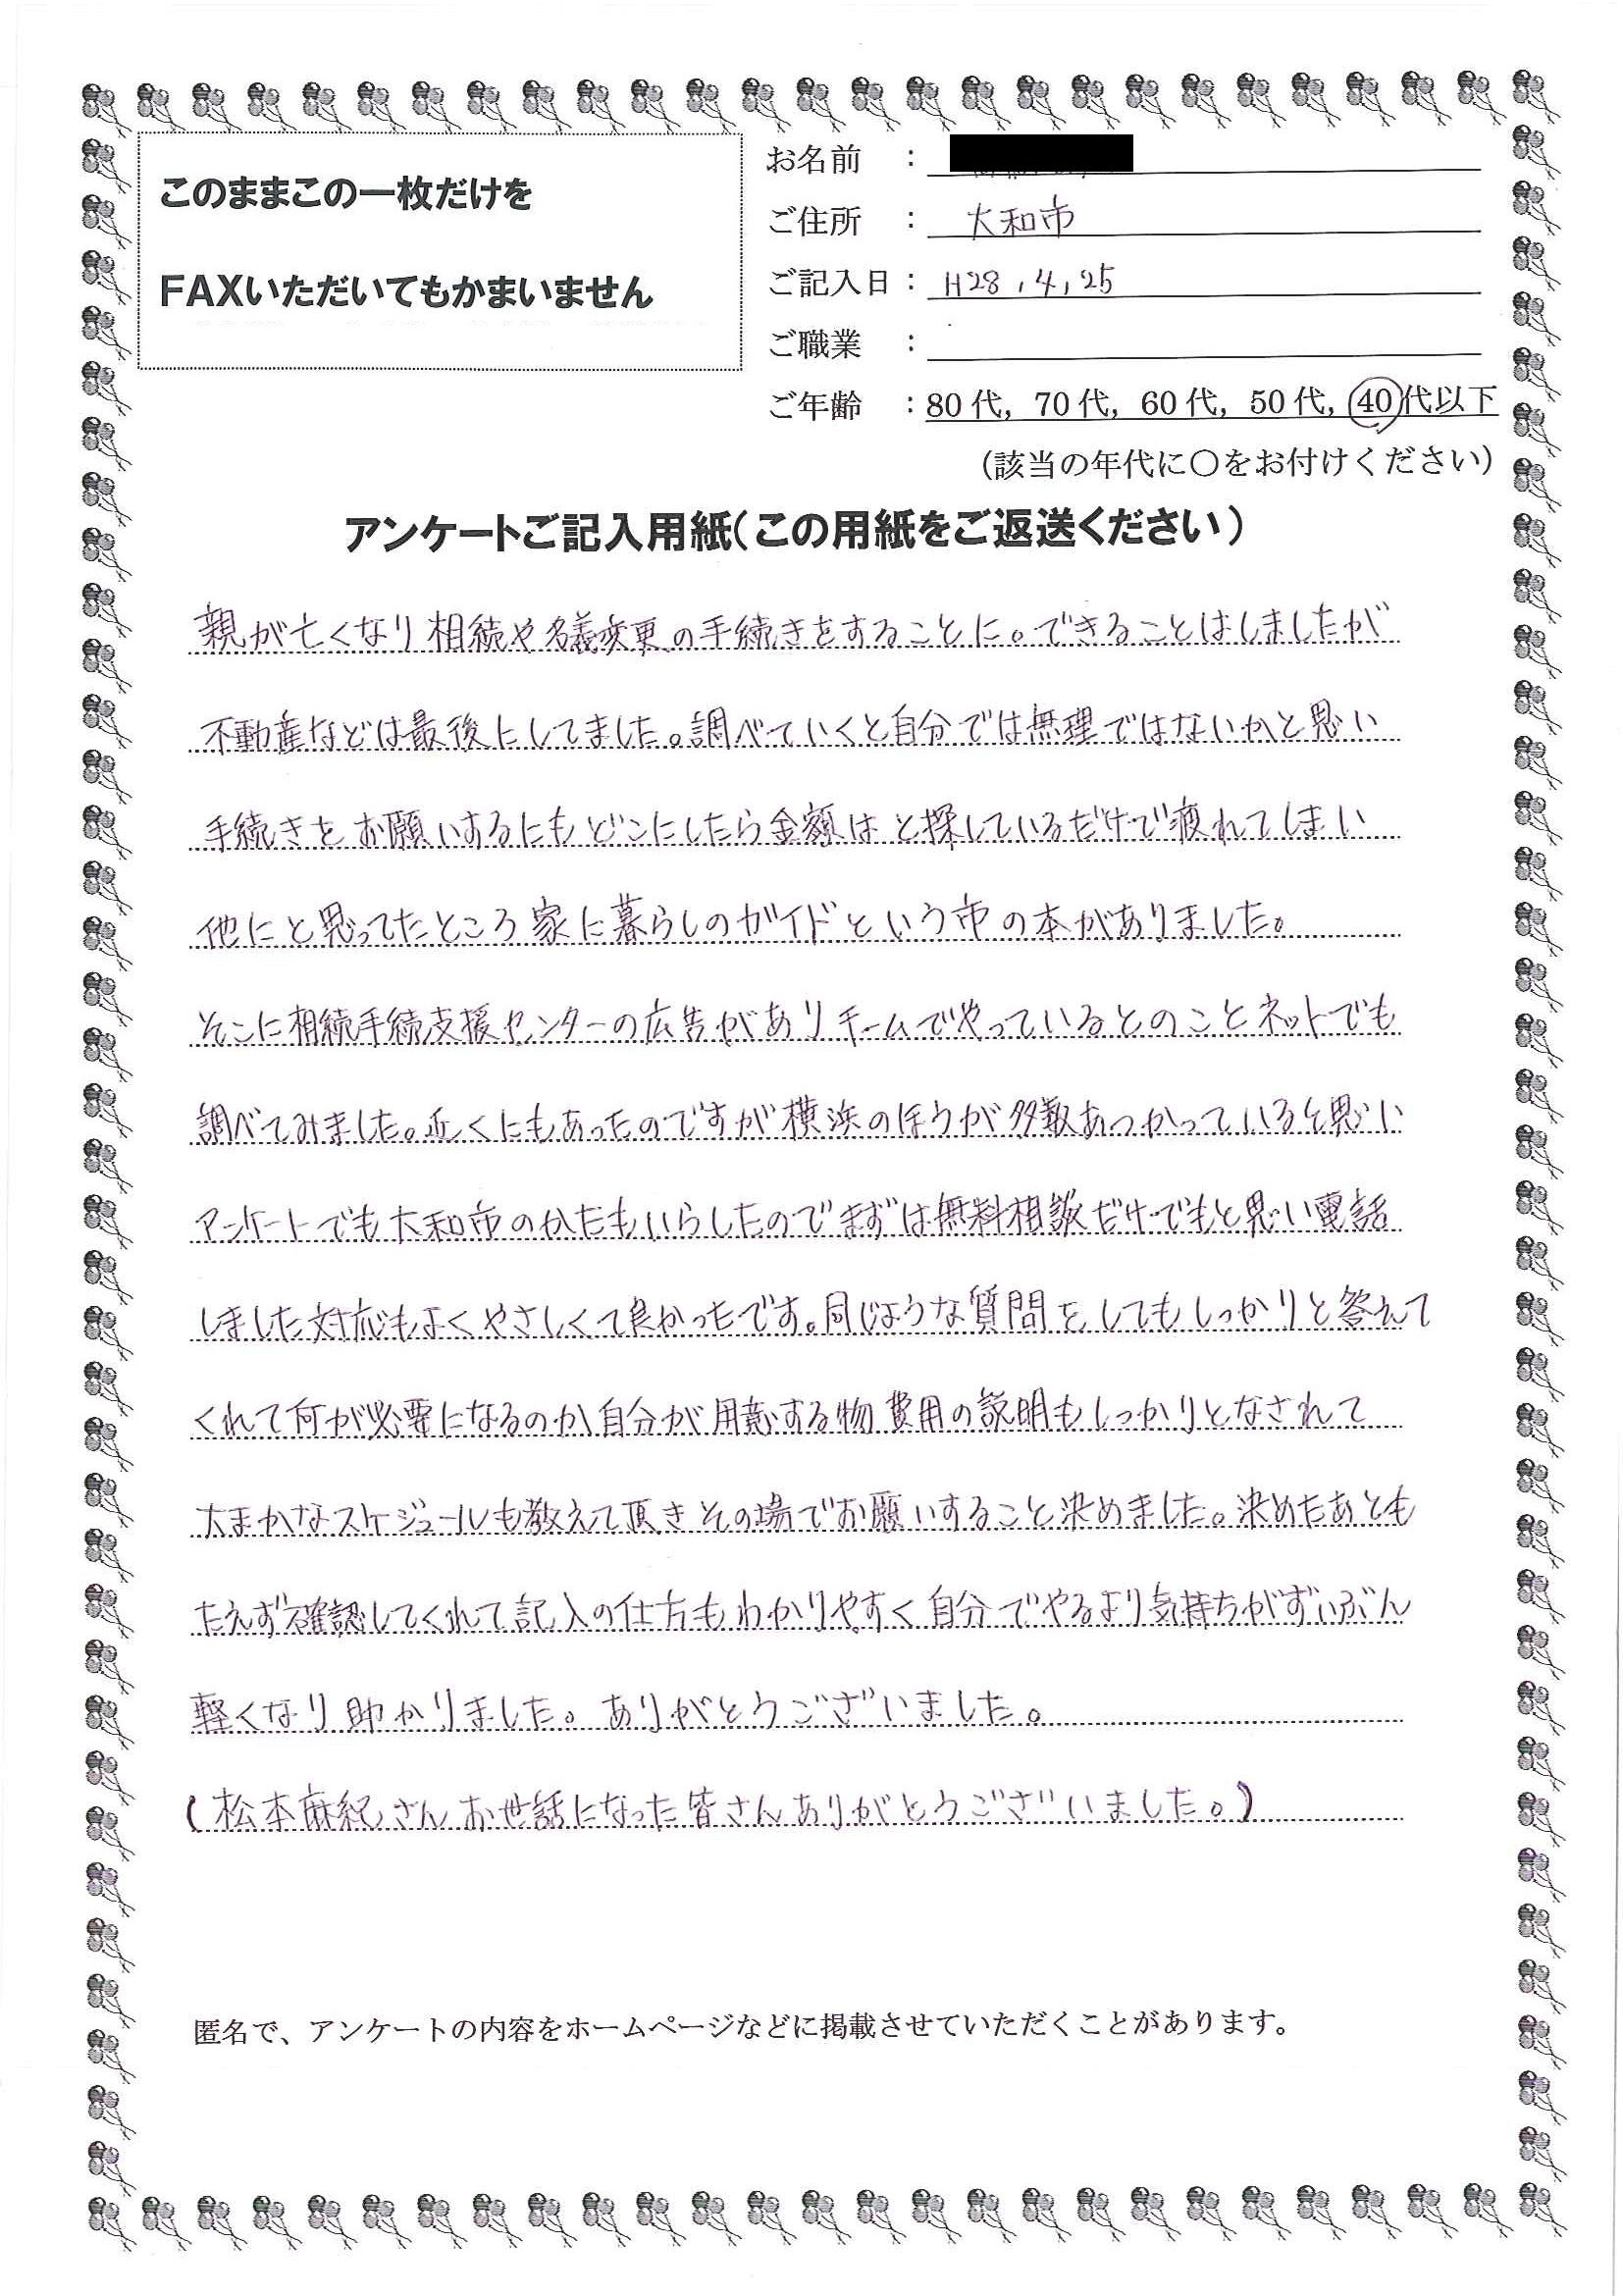 このままこの一枚だけを
FAXいただいてもかまいません
お名前 :
ご住所 : 大和市
ご記入日 : H28,4,25
ご職業 :
ご年齢 : 80代, 70代, 60代, 50代, 40代以下
(該当の年代に○をお付けください)
アンケートご記入用紙(この用紙をご返送ください)
親が亡くなり相続や名義変更の手続きをすることに。できることはしましたが
不動産などは最後にしてました。調べていくと自分では無理ではないかと思い
手続きをお願いするにもどこにしたら金額はと探しているだけで疲れてしまい
他にと思ってたところ家に暮らしのガイドという市の本がありました。
そこに相続手続支援センターの広告がありチームでやっているとのことネットでも
調べてみました。近くにもあったのですが横浜のほうが多数あつかっていると思い
アンケートでも大和市のかたもいらしたのでまずは無料相談だけでもと思い電話
しました対応もよくやさしくて良かったです。同じような質問をしてもしっかりと答えて
くれて何が必要になるのか自分が用意する物費用の説明もしっかりとなされて
大まかなスケジュールも教えて頂きその場でお願いすること決めました。決めたあとも
たえず確認してくれて記入の仕方もわかりやすく自分でやるより気持ちがずいぶん
軽くなり助かりました。ありがとうございました。
(松本麻紀さんお世話になった皆さんありがとうございました。)
匿名で、アンケートの内容をホームページなどに掲載させていただくことがあります。